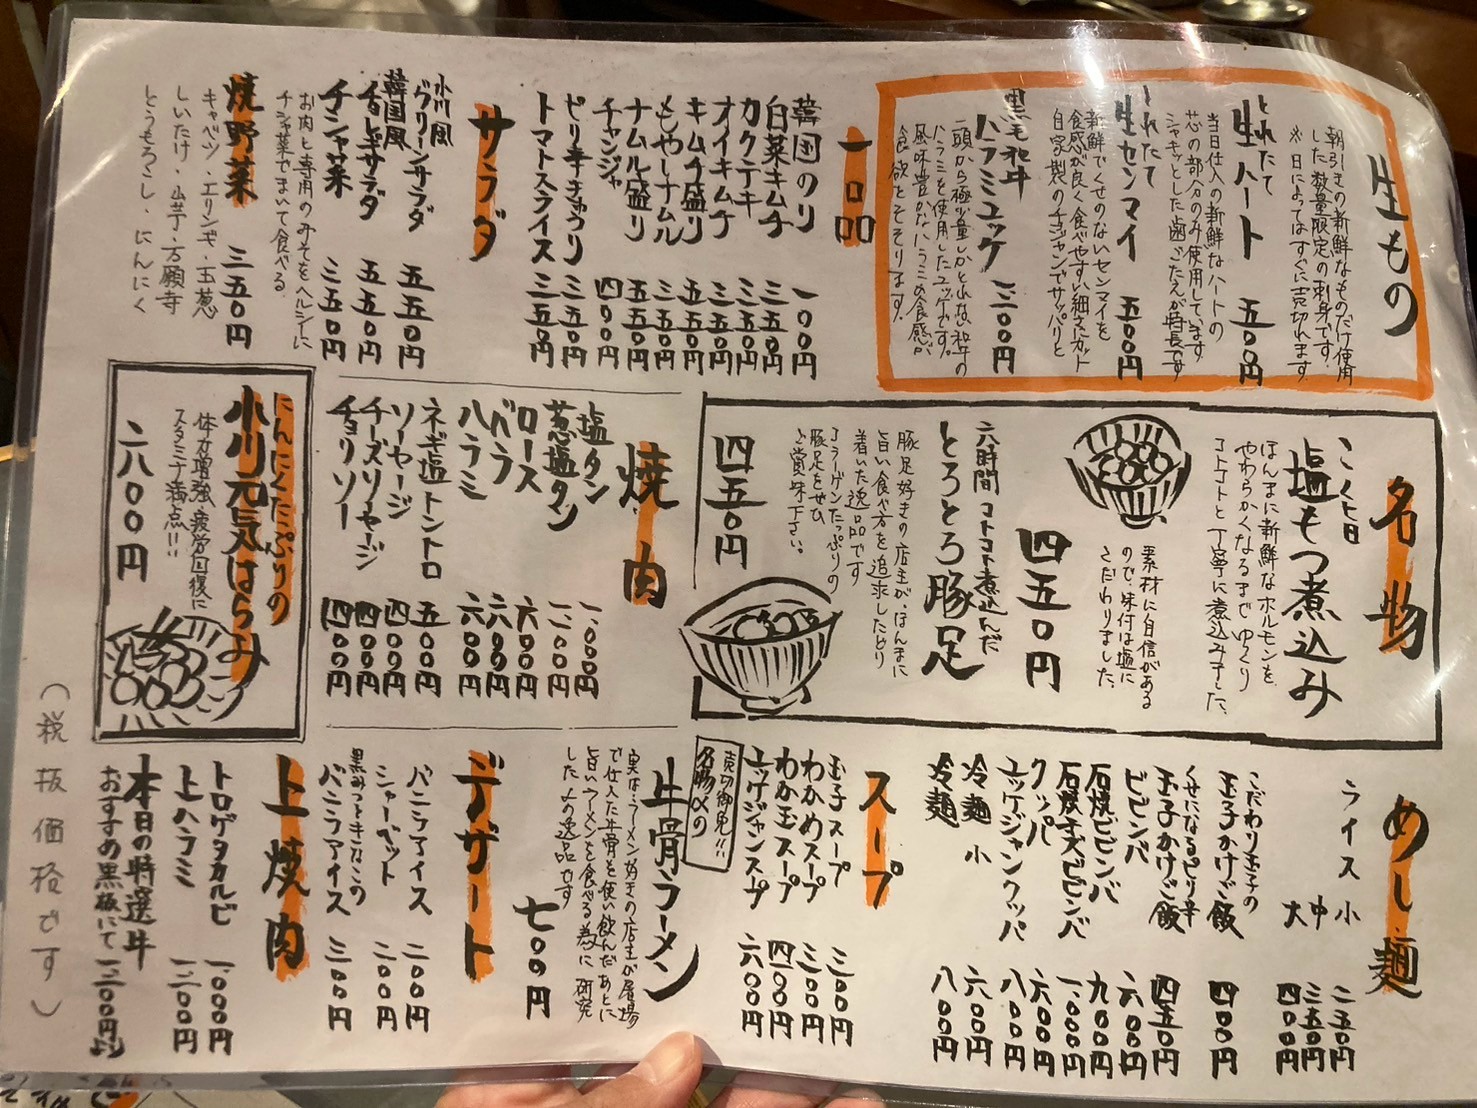 生もの
朝引きの新鮮なものだけ使用
した数量限定の刺身です。
※日によってはすぐに売切れます
とれたて
生ハート 五五〇円
当日仕入の新鮮なハートの
芯の部分のみ使用しています。
シャキッとした歯ごたえが特長です
とれたて
生センマイ 五五〇円
新鮮でくせのないセンマイを
食感が良く食べやすい細さにカット
自家製のチョジャンでサッパリと
黒毛和牛
ハラミユッケ 一、二〇〇円
一頭から極少量しかとれない和牛の
ハラミを使用したユッケです。
風味豊かなハラミの食感が
食欲をそそります。
一品
韓国のり 一〇〇円
白菜キムチ 三五〇円
カクテキ 三五〇円
オイキムチ 三五〇円
キムチ盛り 五五〇円
もやしナムル 三五〇円
ナムル盛り 五五〇円
チャンジャ 四〇〇円
ピリ辛きゅうり 三五〇円
トマトスライス 三五〇円
サラダ
小川風
グリーンサラダ 五五〇円
韓国風
チョレギサラダ 五五〇円
チシャ菜 三五〇円
お肉と専用のみそをヘルシーに
チシャ菜でまいて食べる。
焼野菜 三五〇円
キャベツ・エリンギ・玉葱
しいたけ・山芋・万願寺
とうもろこし・にんにく
名物
こく旨
塩もつ煮込み
ほんまに新鮮なホルモンを
やわらかくなるまでゆっくり
コトコトと丁寧に煮込みました。
素材に自信がある
ので、味付は塩に
こだわりました。
四五〇円
六時間コトコト煮込んだ
とろとろ豚足
豚足好きの店主が、ほんまに
旨い食べ方を追求したどり
着いた逸品です
コラーゲンたっぷりの
豚足をぜひ
ご賞味下さい。
四五〇円
焼肉
塩タン 一、〇〇〇円
葱塩タン 一、一〇〇円
ロース 六〇〇円
バラ 六〇〇円
ハラミ 六〇〇円
ネギ塩トントロ 五〇〇円
ソーセージ 四〇〇円
チーズソーセージ 四〇〇円
チョリソー 四〇〇円
にんにくたっぷりの
小川元気はらみ
体力増強・疲労回復に
スタミナ満点!!!
二八〇〇円
めし麺
ライス 小 二五〇円
中 三五〇円
大 四〇〇円
こだわり玉子の
玉子かけご飯 四〇〇円
くせになるピリ辛
玉子かけご飯 四五〇円
ビビンバ 六〇〇円
石焼ビビンバ 九〇〇円
石焼チーズビビンバ 一、〇〇〇円
クッパ 六〇〇円
ユッケジャンクッパ 八〇〇円
冷麺 小 六〇〇円
冷麺 八〇〇円
スープ
玉子スープ 三〇〇円
わかめスープ 三〇〇円
わか玉スープ 四〇〇円
ユッケジャンスープ 六〇〇円
売切御免!!
名物〆の
牛骨ラーメン
実は・ラーメン好きの店主が市場
で仕入た牛骨を使い飲んだあとに
旨いラーメンを食べる為に研究
した〆の逸品です
七〇〇円
デザート
バニラアイス 二〇〇円
シャーベット 二〇〇円
黒みつときなこの
バニラアイス 三〇〇円
上焼肉
トロゲタカルビ 一、〇〇〇円
上ハラミ 一、二〇〇円
本日の特選牛
おすすめ黒板にて 一、二〇〇円より
(税抜価格です)